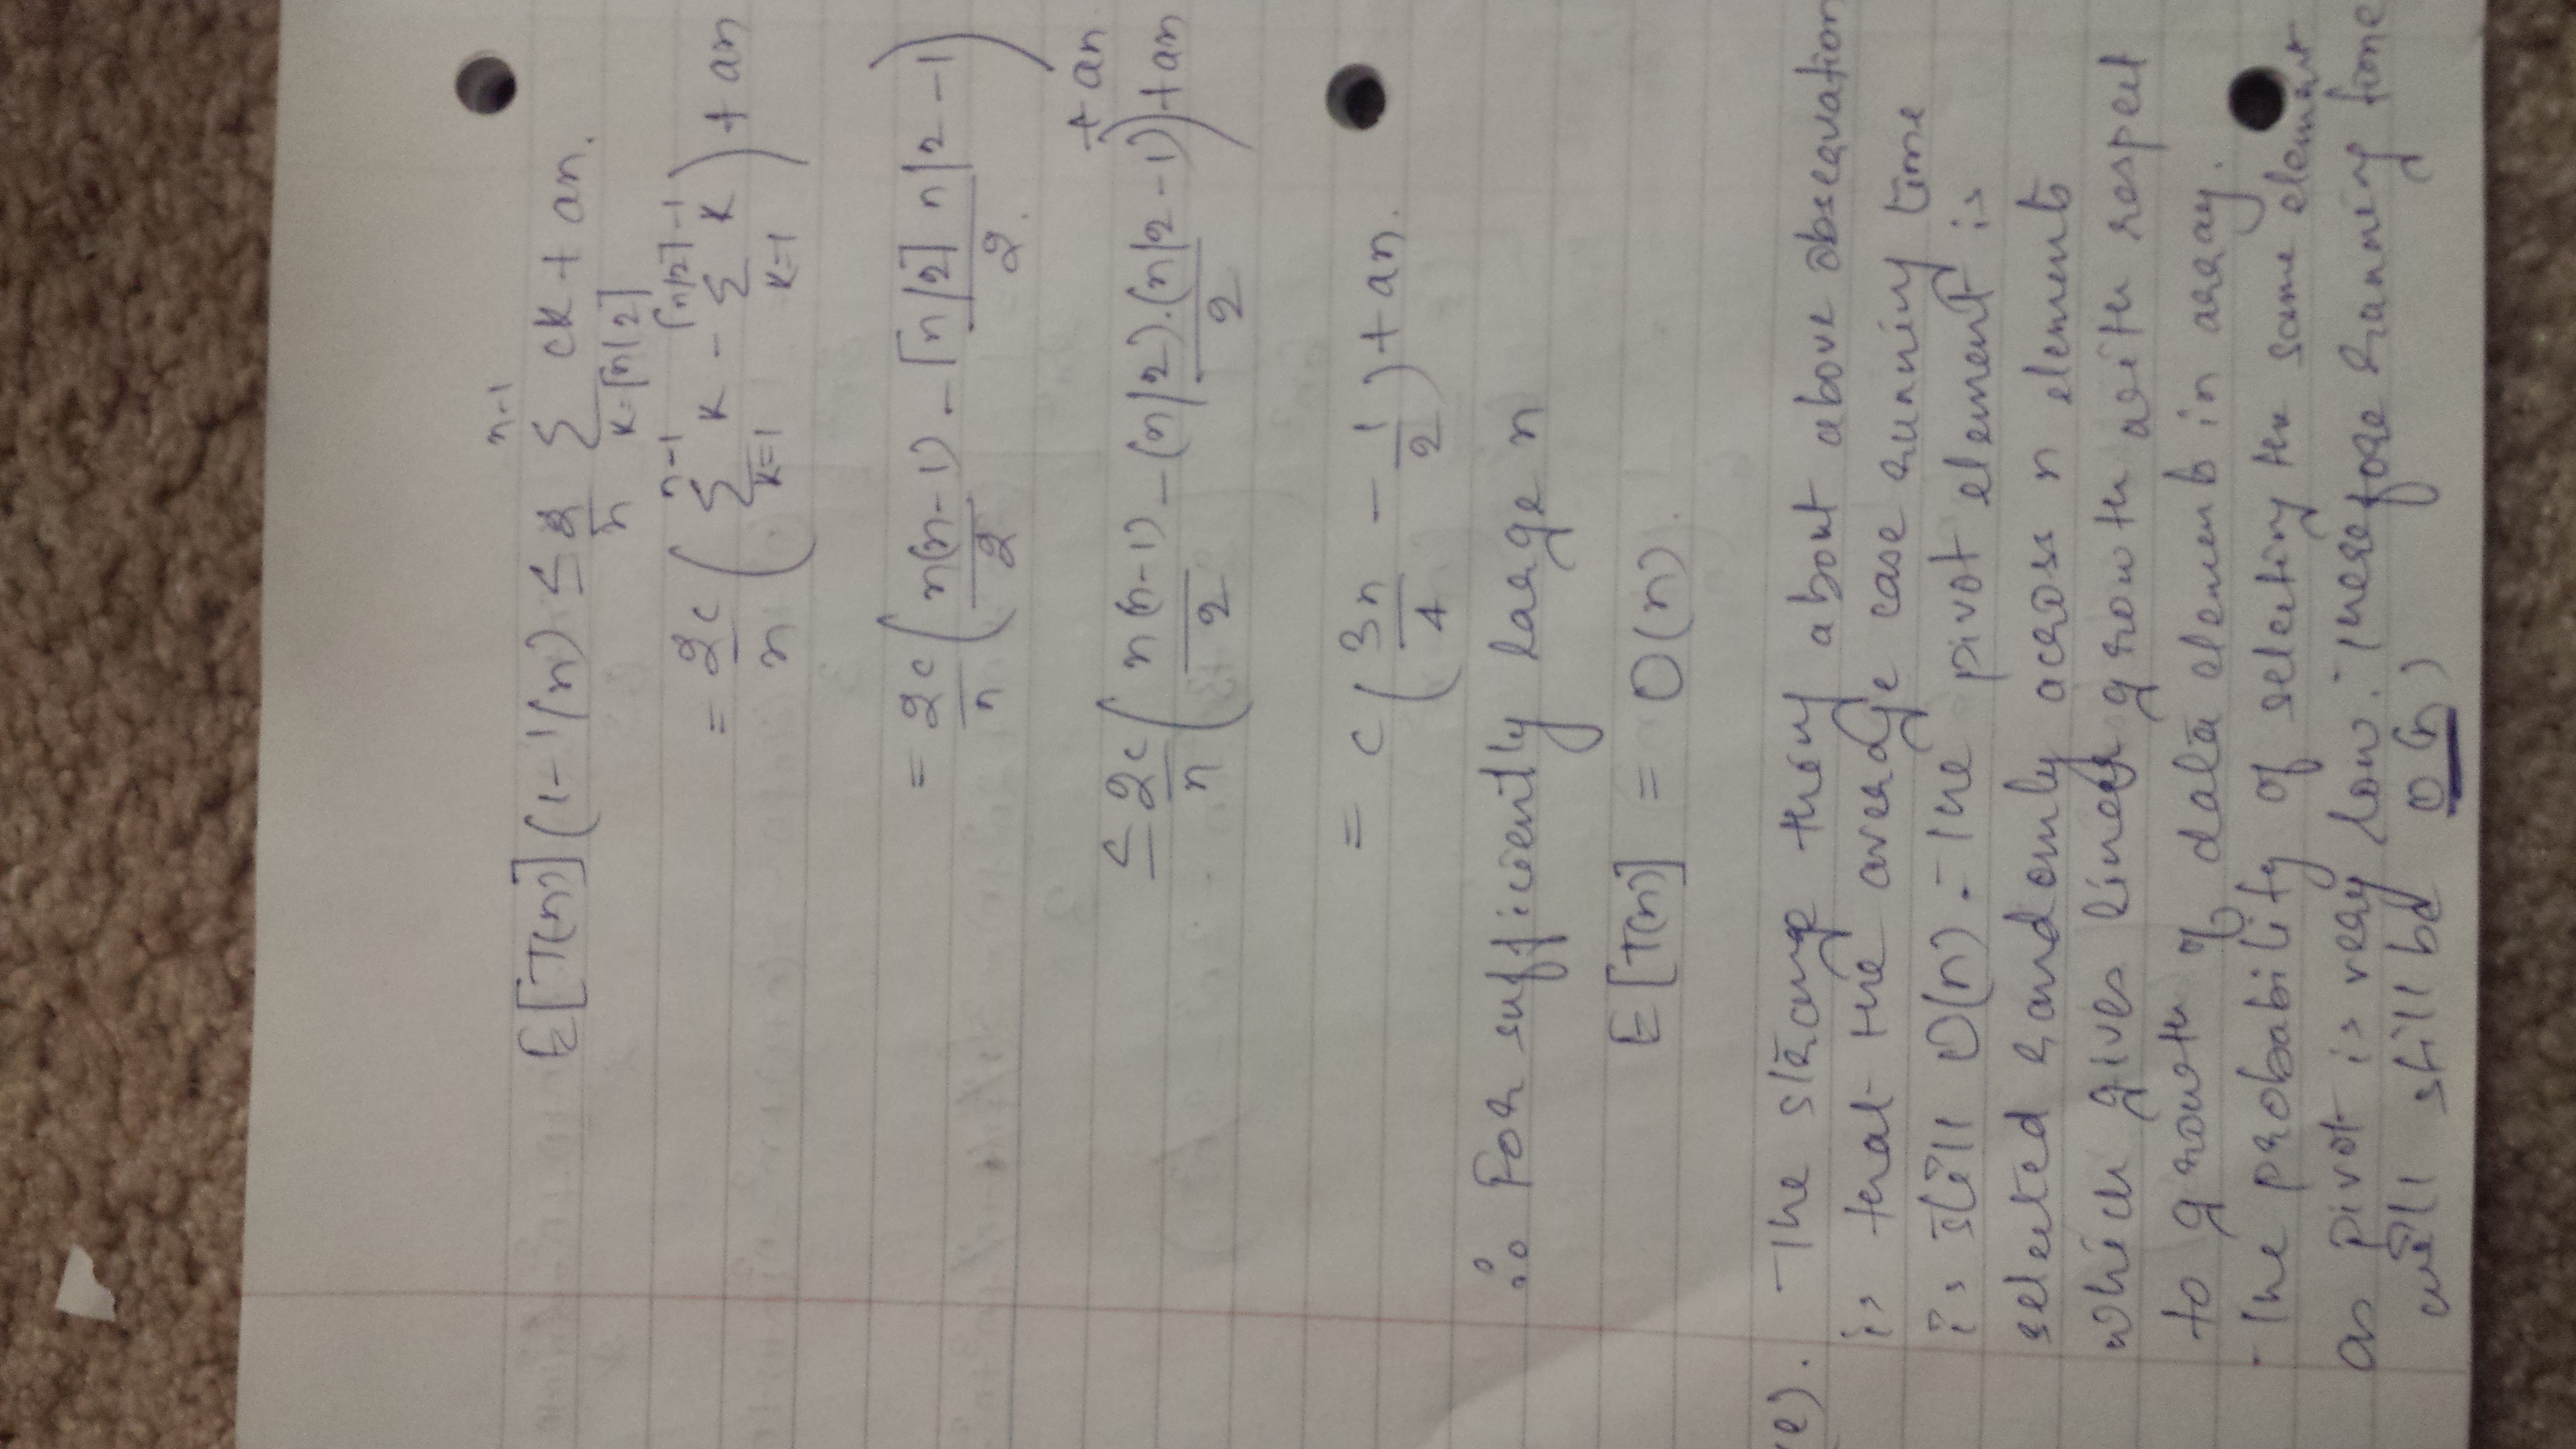 E[T(n)](1-1/n) ≤ 2/n Σ_{k=⌈n/2⌉}^{n-1} ck + an.
= 2c/n ( Σ_{k=1}^{n-1} k - Σ_{k=1}^{⌈n/2⌉-1} k ) + an
= 2c/n ( n(n-1)/2 - ⌈n/2⌉ n/2 -1/2. )
+ an
≤ 2c/n ( n(n-1)/2 - (n/2).(n/2 -1)/2 ) + an
= c ( 3n/4 - 1/2 ) + an.
∴ For sufficiently large n
E[T(n)] = O(n).
(e). The strange thing about above observation
is that the average case running time
is still O(n). The pivot element is
selected randomly across n elements
which gives linear growth with respect
to growth of data elements in array.
The probability of selecting the same element
as pivot is very low. Therefore running time
will still be O(n)